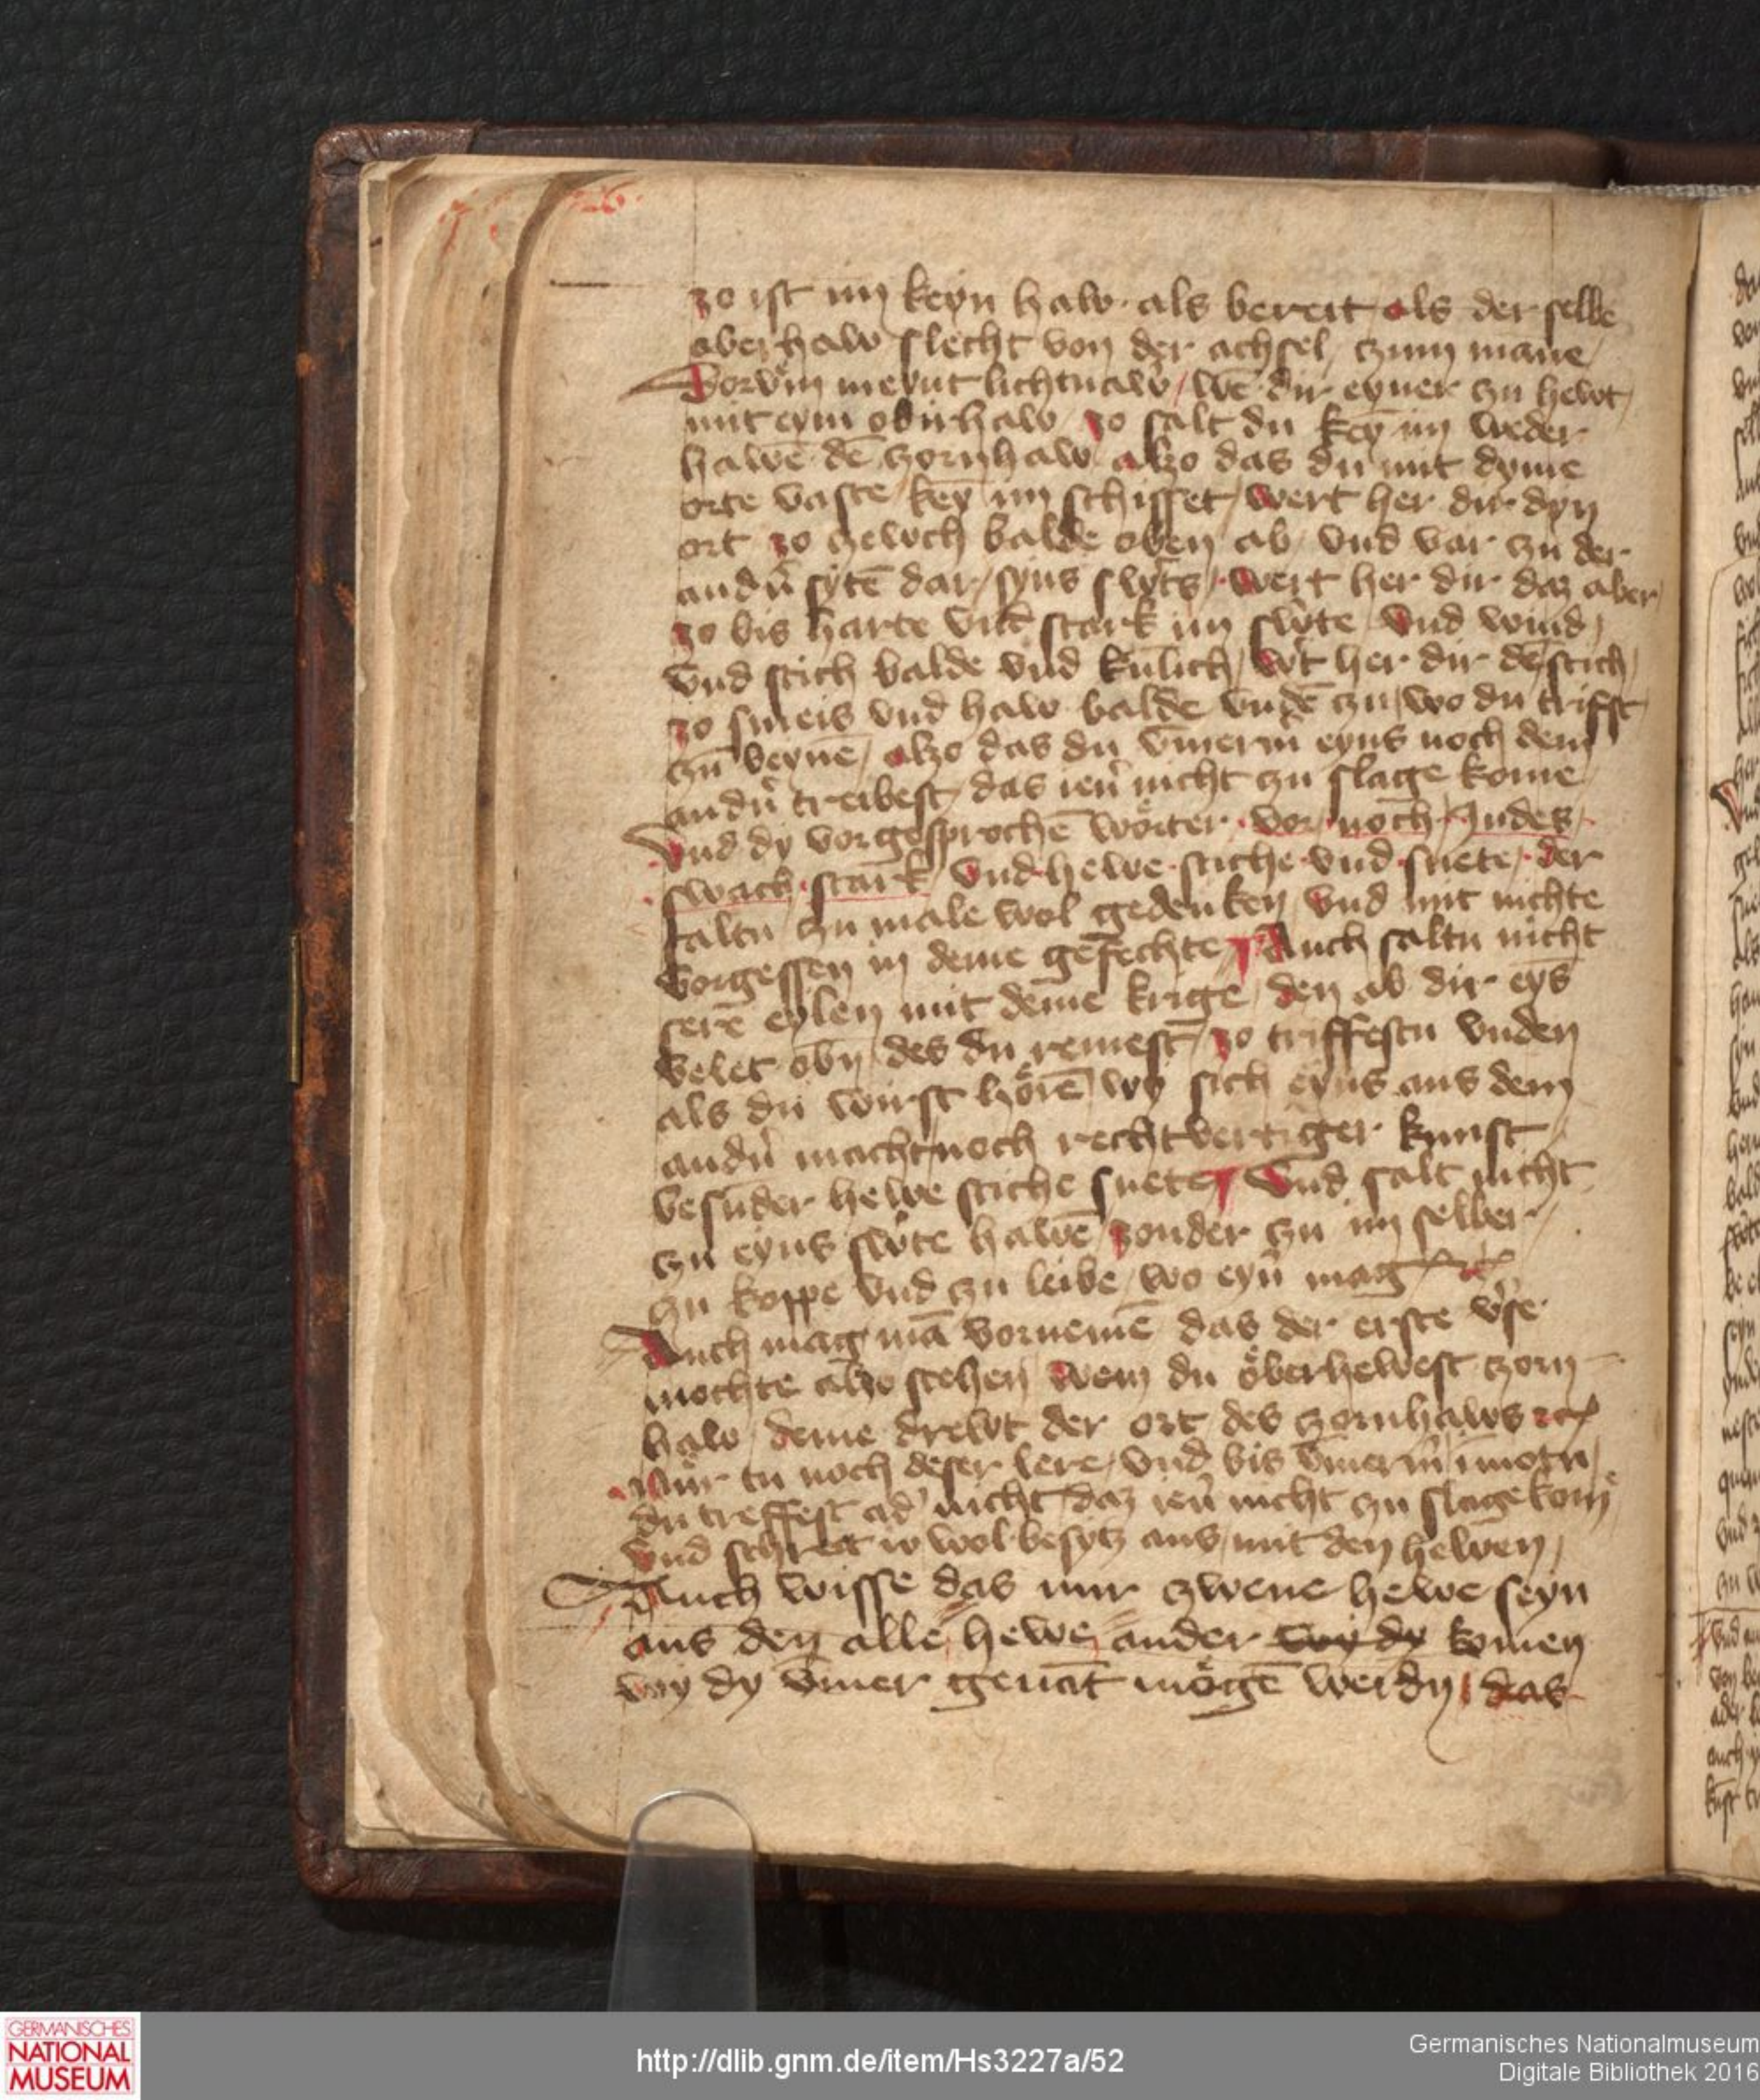 26.
zo ist im keyn haw als bereit als der selbe
aberhaw slecht von der achsel czum manne
Dorüm meynt lichtnawer / wen dir eyner czu hewt /
mit eym obirhaw / zo salt du keyn im weder
hawen den zornhaw alzo das du mit dyme
orte vaste keyn im schisset / wert her dir dyn
ort zo czewch balde oben ab vnd var czu der
andern syten dar / syns swertes · wert her dir daz aber
zo bis harte vnd stark im swerte vnd wind /
vnd stich balde vnd künlich / wert her dir den stich /
zo smeis vnd haw balde vnden czu / wo du triffst /
czun beynen / alzo das du ummermer eyns noch dem
andern treibest / das iener nicht czu slage kome
Vnd dy vorgesprochen wörter · vor / noch / Indes /
swach · stark · vnd hewe · stiche · vnd snete / der
saltu czu male wol gedenken / vnd mit nichte
vorgessen in deme gefechte Auch saltu nicht
sere eylen mit deme krige / den ab dir eyns
velet obn / des du remest / zo triffestu vnden
als du wirst hören / wy sich eyns aus dem
andern macht / noch rechtvertiger kunst /
besunder hewe stiche snete Vnd salt nicht
czu eyns swerte hawen / zonder czu im selber /
czu koppe vnd czu leibe / wo eyner mag etc
Auch mag man vornemen das der erste vers
mochte alzo stehen wem du öberhewest zorn
haw / deme drewt der ort des zornhaws etc
Nür tu noch deser lere / vnd bis ummermer in motu /
du treffest ader nicht / daz iener nicht czu slage kome
vnd schret io wol besytz aus / mit den hewen /
Auch wisse das nur zwene hewe seyn
aus den alle hewe ander wy dy komen
wy dy ummer genant mögen werdn / das
GERMANISCHES
NATIONAL
MUSEUM
http://dlib.gnm.de/item/Hs3227a/52
Germanisches Nationalmuseum
Digitale Bibliothek 2016